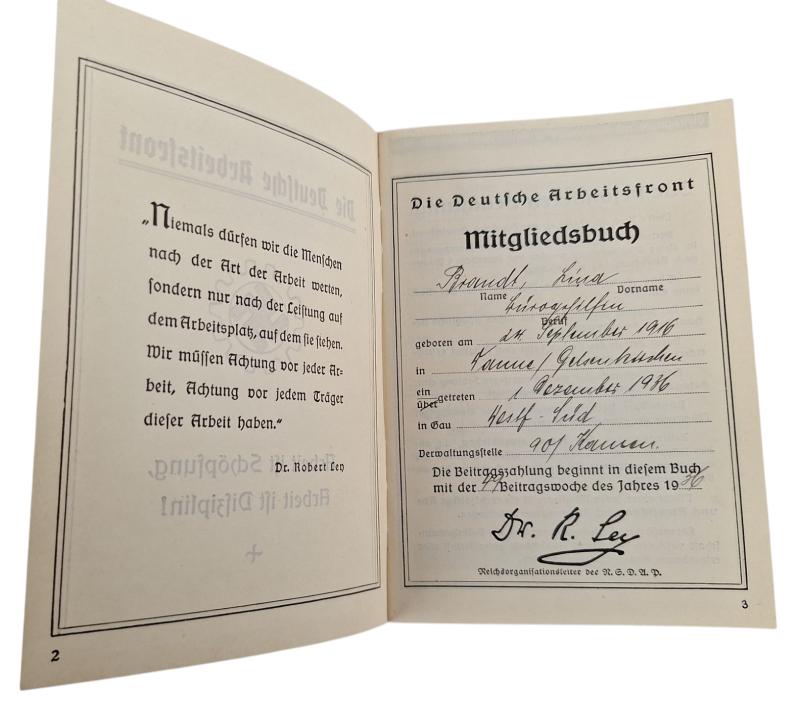 „Niemals dürfen wir die Menschen
nach der Art der Arbeit werten,
sondern nur nach der Leistung auf
dem Arbeitsplatz, auf dem sie stehen.
Wir müssen Achtung vor jeder Ar-
beit, Achtung vor jedem Träger
dieser Arbeit haben.“
Dr. Robert Ley
2
Die Deutsche Arbeitsfront
Mitgliedsbuch
Brandt, Lina
Name Vorname
Bürogehilfin
Beruf
geboren am 24. September 1916
in Wanne/Gelsenkirchen
ein
über getreten 1 Dezember 1936
in Gau Westf-Süd
Verwaltungsstelle 90/ Kamen.
Die Beitragszahlung beginnt in diesem Buch
mit der 49 Beitragswoche des Jahres 1936
Dr. R. Ley
Reichsorganisationsleiter der N.S.D.A.P.
3
Die Deutsche Arbeitsfront
Arbeit ist Schöpfung,
Arbeit ist Disziplin!